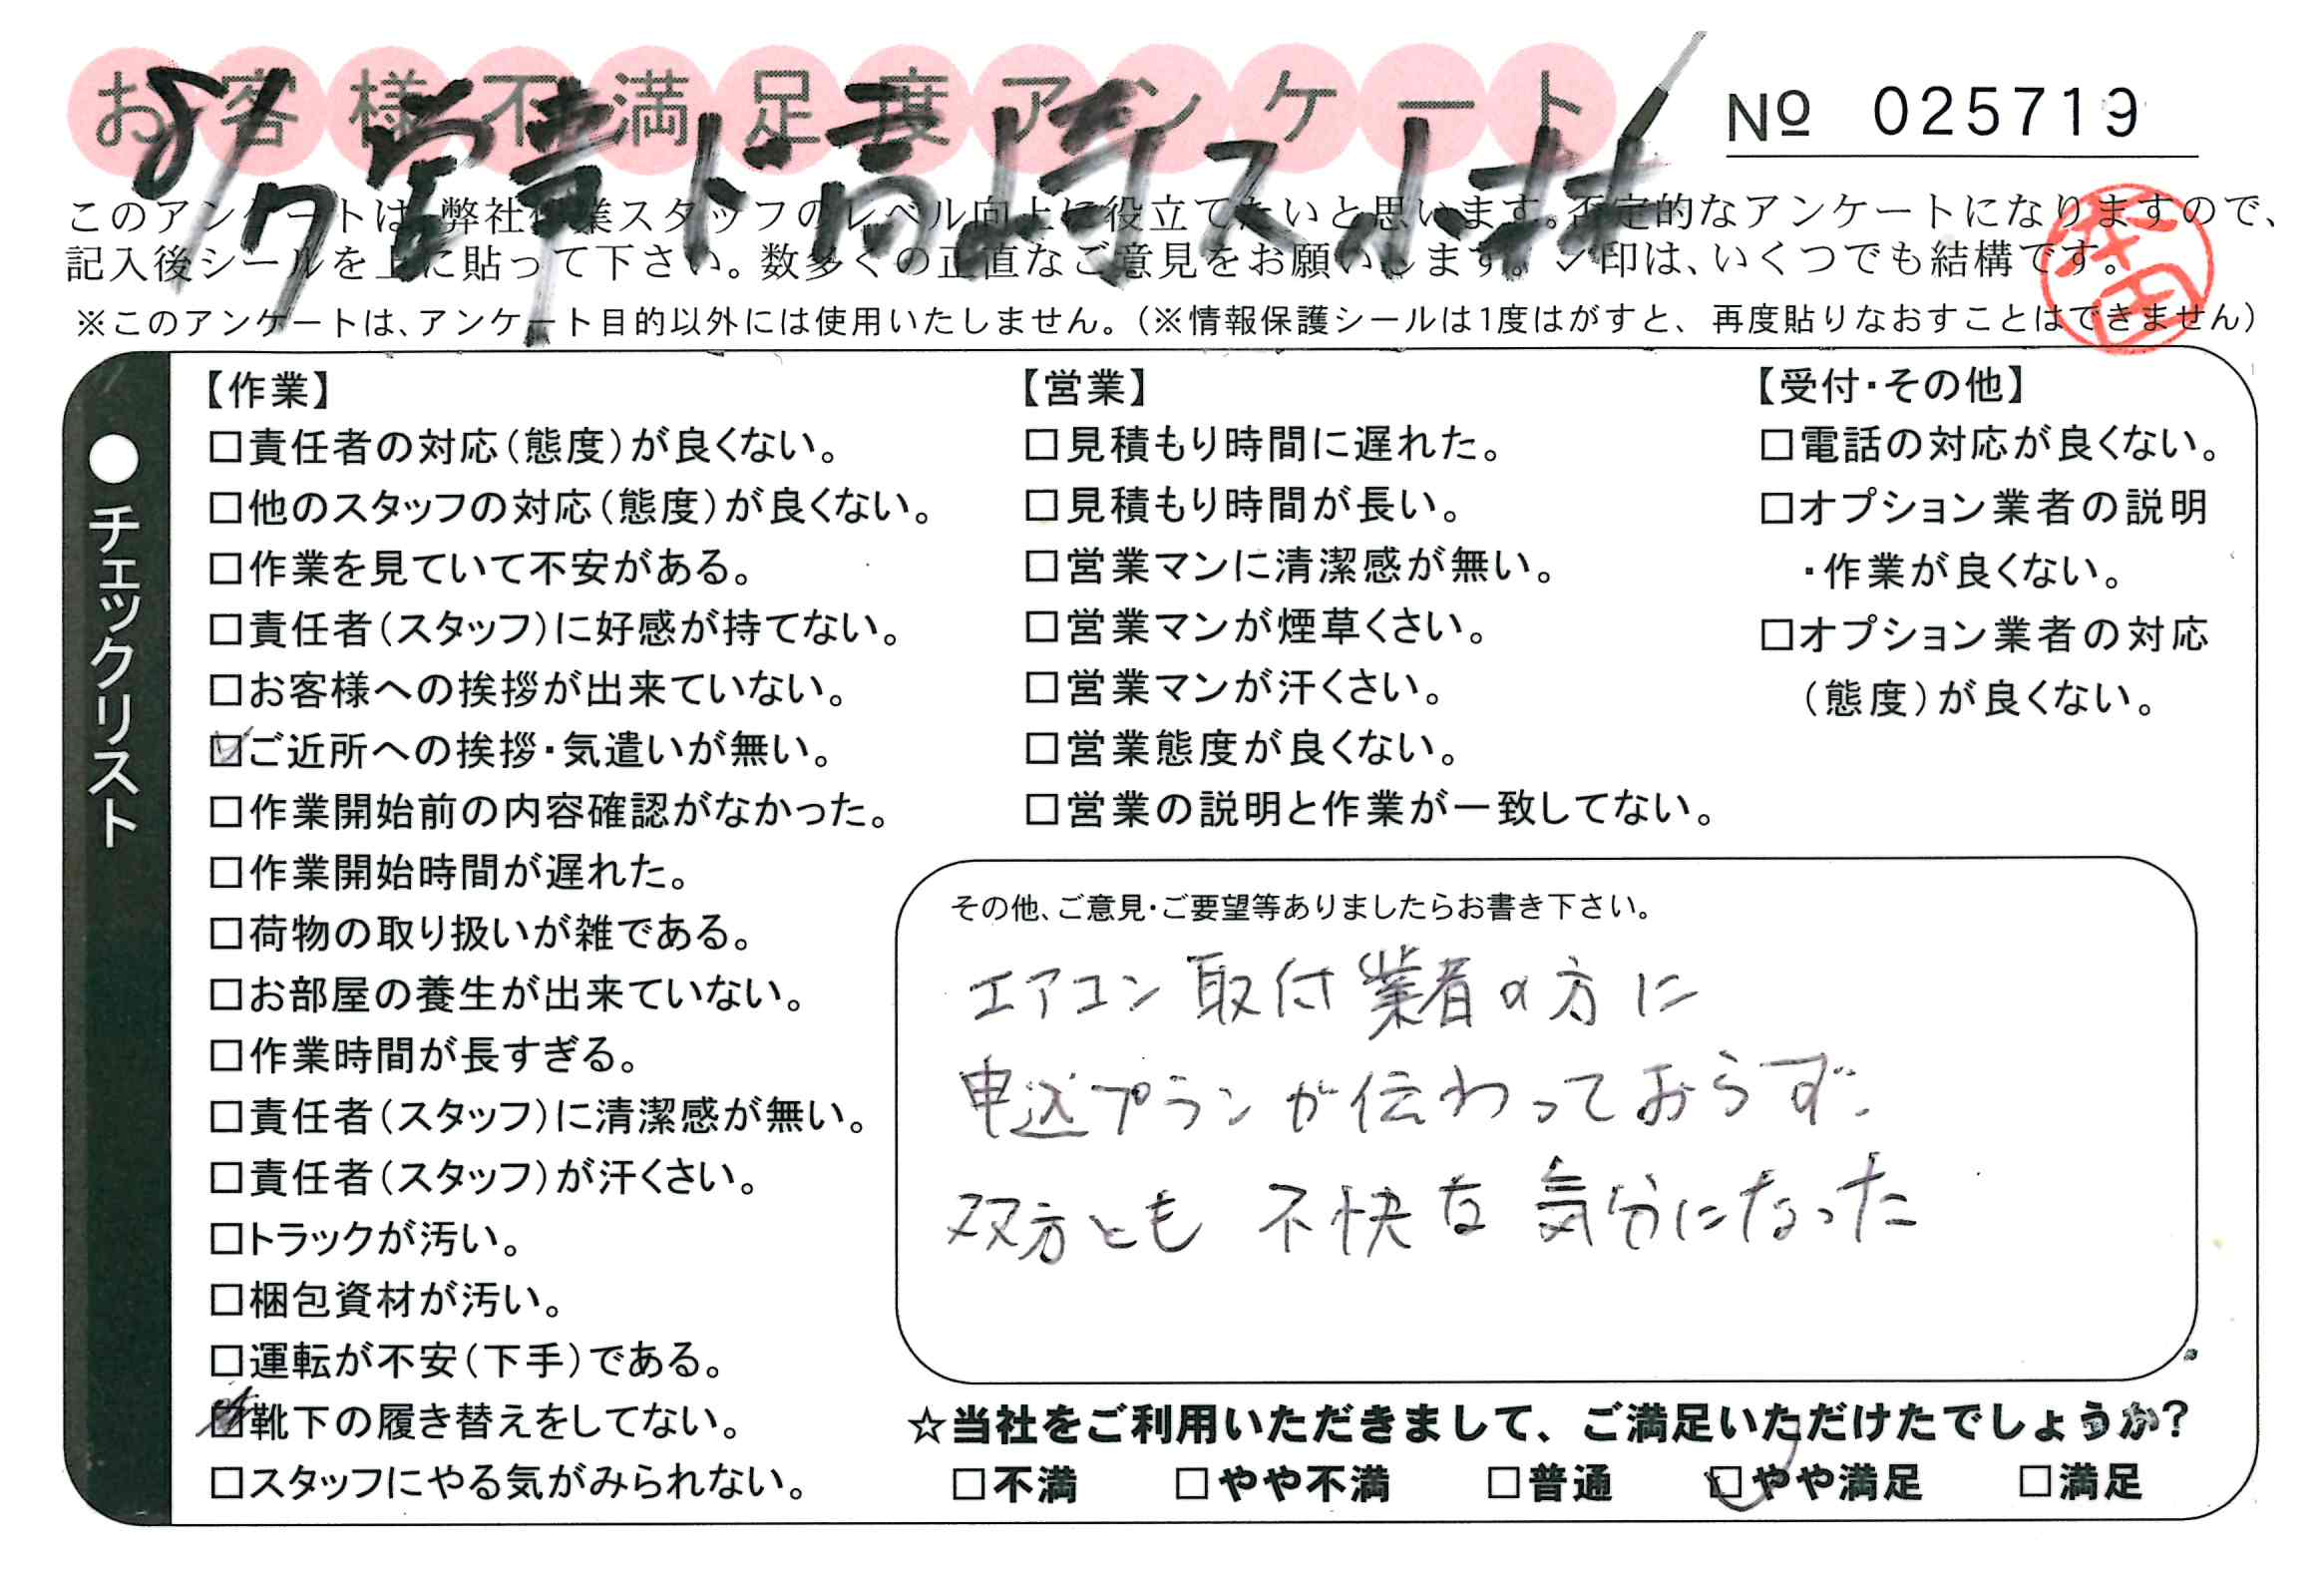 お客様不満足度アンケート
No 025719
このアンケートは、弊社作業スタッフのレベル向上に役立てたいと思います。否定的なアンケートになりますので、
記入後シールを上に貼って下さい。数多くの正直なご意見をお願いします。✓印は、いくつでも結構です。
※このアンケートは、アンケート目的以外には使用いたしません。(※情報保護シールは1度はがすと、再度貼りなおすことはできません)
●チェックリスト
【作業】
□責任者の対応(態度)が良くない。
□他のスタッフの対応(態度)が良くない。
□作業を見ていて不安がある。
□責任者(スタッフ)に好感が持てない。
□お客様への挨拶が出来ていない。
☑ご近所への挨拶・気遣いが無い。
□作業開始前の内容確認がなかった。
□作業開始時間が遅れた。
□荷物の取り扱いが雑である。
□お部屋の養生が出来ていない。
□作業時間が長すぎる。
□責任者(スタッフ)に清潔感が無い。
□責任者(スタッフ)が汗くさい。
□トラックが汚い。
□梱包資材が汚い。
□運転が不安(下手)である。
□靴下の履き替えをしてない。
□スタッフにやる気がみられない。
【営業】
□見積もり時間に遅れた。
□見積もり時間が長い。
□営業マンに清潔感が無い。
□営業マンが煙草くさい。
□営業マンが汗くさい。
□営業態度が良くない。
□営業の説明と作業が一致してない。
【受付・その他】
□電話の対応が良くない。
□オプション業者の説明
・作業が良くない。
□オプション業者の対応
(態度)が良くない。
その他、ご意見・ご要望等ありましたらお書き下さい。
エアコン取付業者の方に
申込プランが伝わっておらず、
双方とも不快な気分になった
☆当社をご利用いただきまして、ご満足いただけたでしょうか?
□不満 □やや不満 □普通 ☑やや満足 □満足